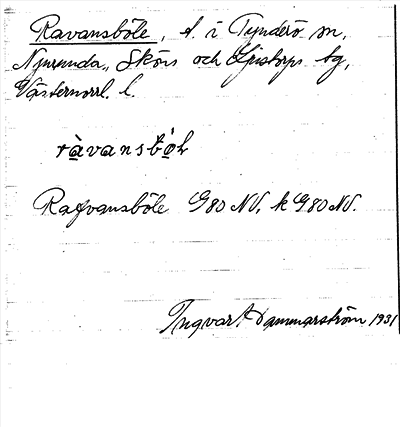 Ravansböle, t. i Tynderö sn,
Njurunda, Sköns och Ljustorps tg,
Västernorrl. l.
ràvansbö̀l
Rafvansböle G80 NV, k G80 NV.
Ingvar Hammarström 1931